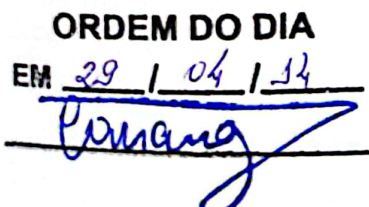 ORDEM DO DIA
EM 29 / 04 / 14